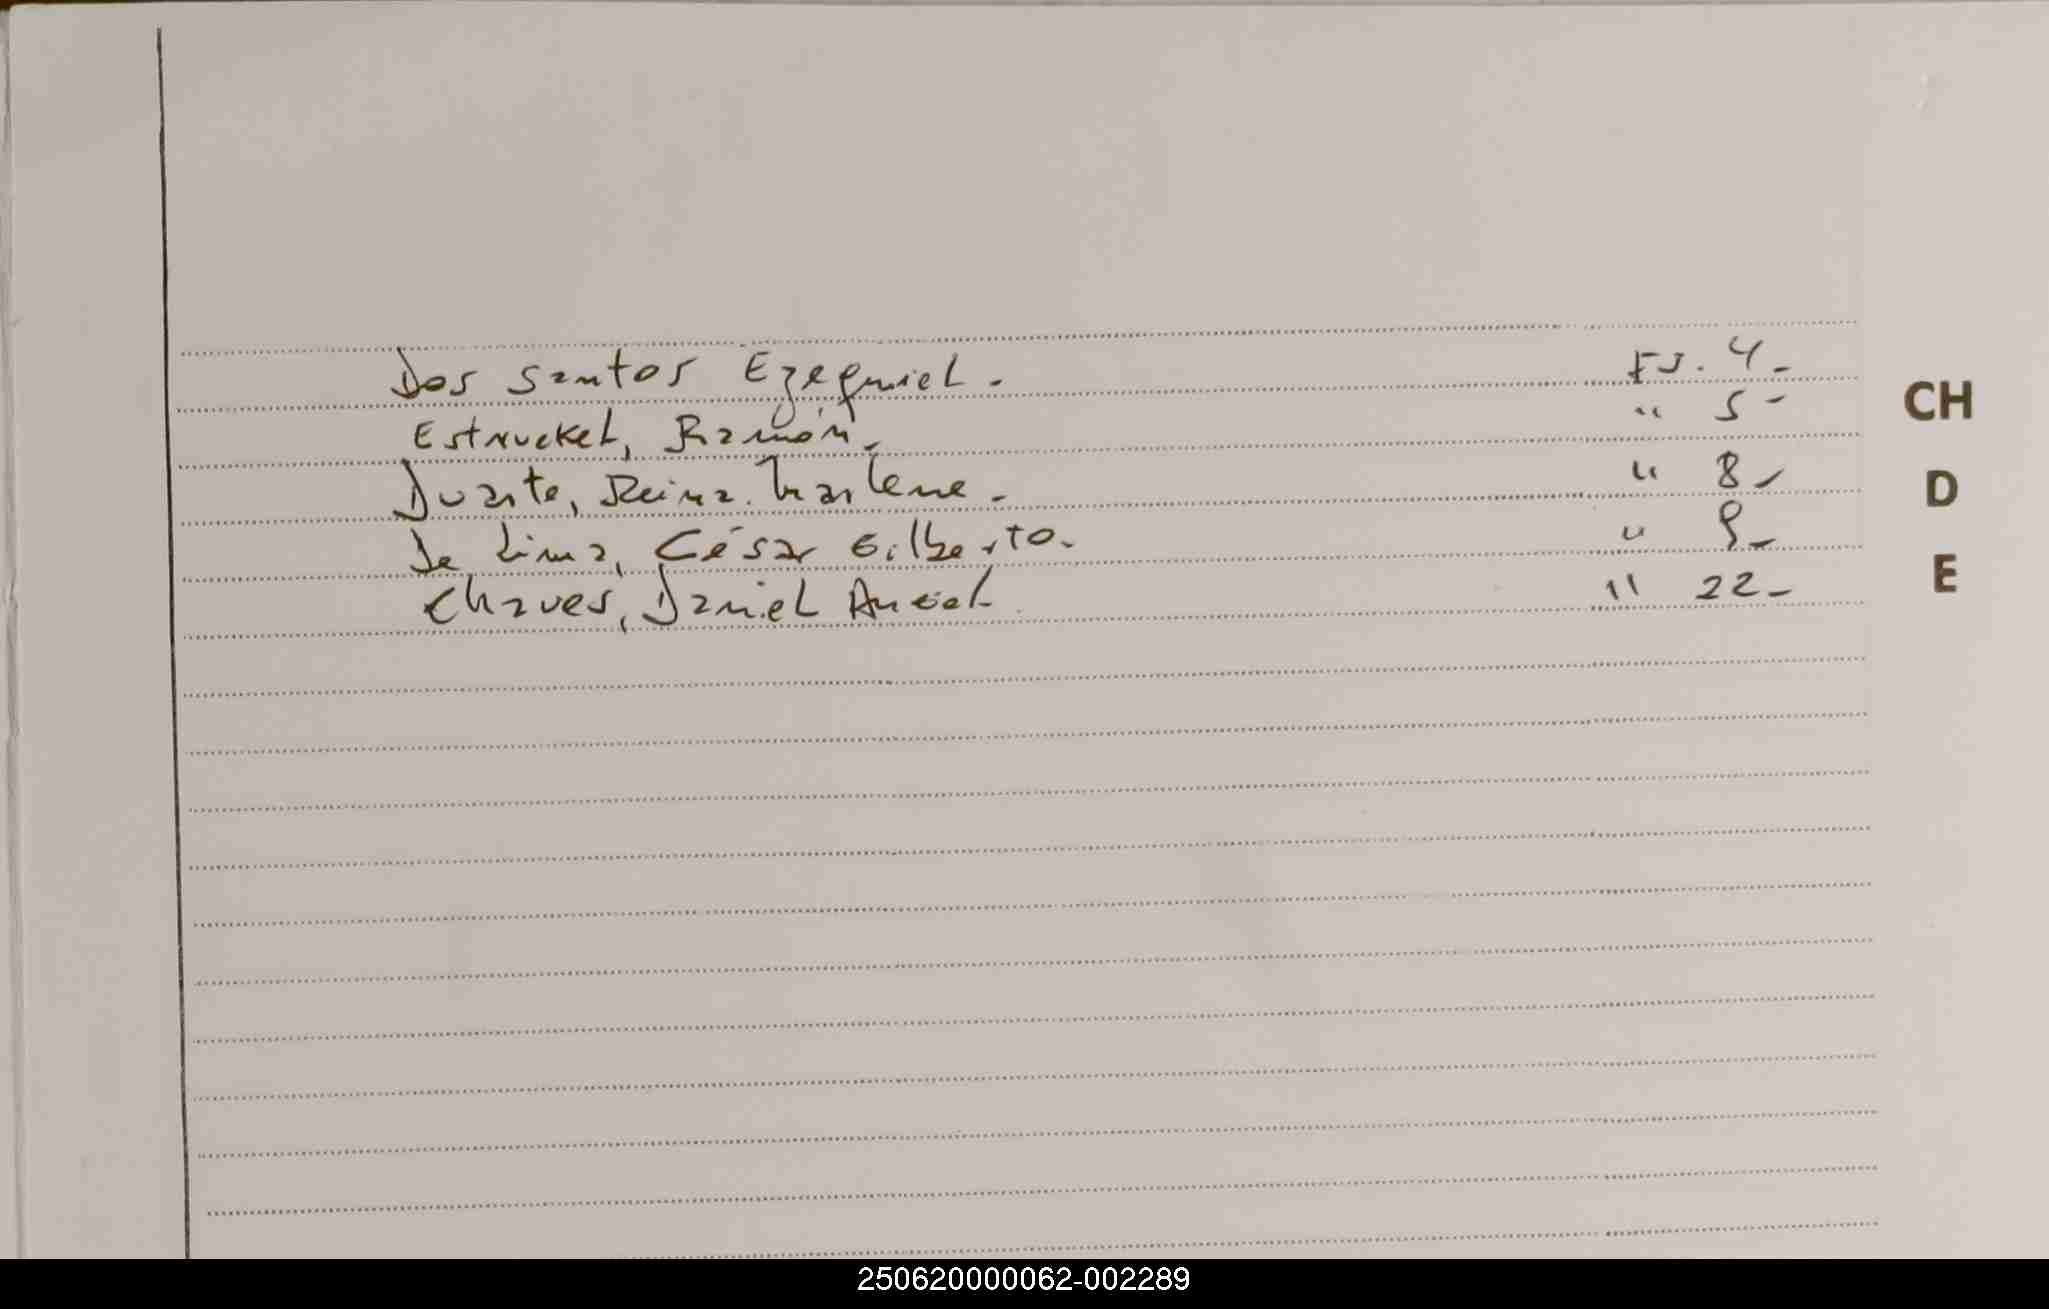 Dos Santos Ezequiel. FJ. 4-
Estruckel, Ramón. " 5-
Duarte, Reina. Marlene. " 8-
De Lima, César Gilberto. " 9-
Chaves, Daniel " 22-
CH
D
E
250620000062-002289